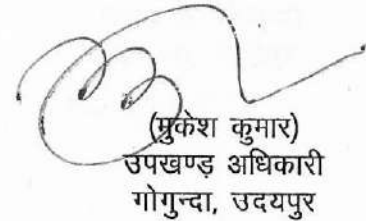 (मुकेश कुमार)
उपखण्ड अधिकारी
गोगुन्दा, उदयपुर